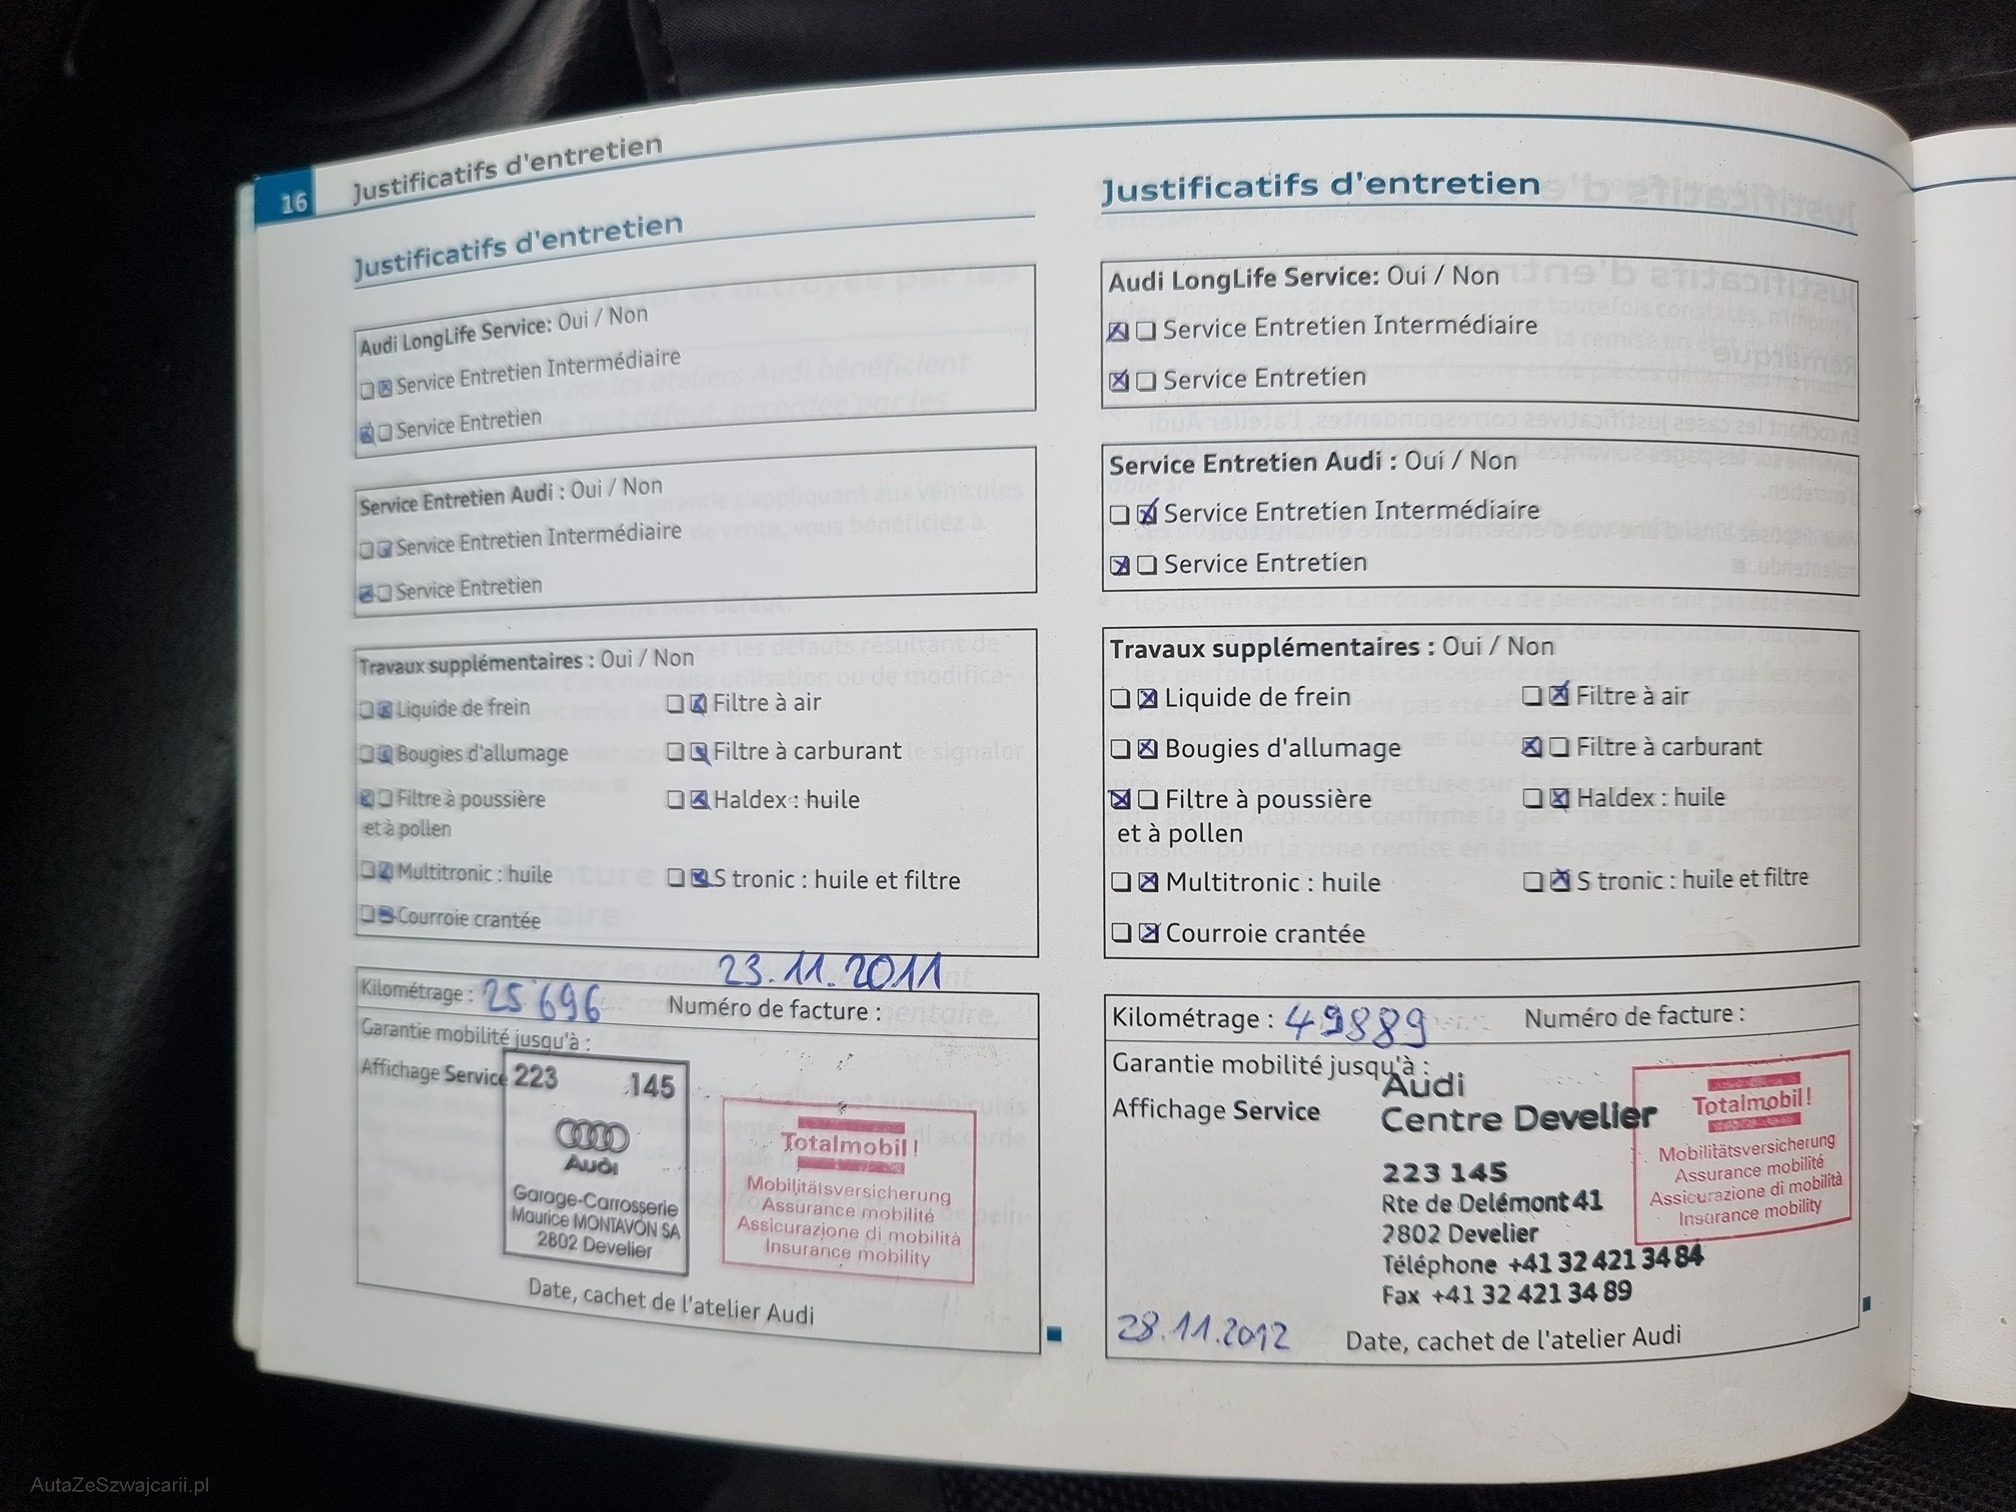 16
Justificatifs d'entretien
Justificatifs d'entretien
Audi LongLife Service: Oui / Non
Service Entretien Intermédiaire
Service Entretien
Service Entretien Audi : Oui / Non
Service Entretien Intermédiaire
Service Entretien
Travaux supplémentaires : Oui / Non
Liquide de frein
Filtre à air
Bougies d'allumage
Filtre à carburant
Filtre à poussière
et à pollen
Haldex : huile
Multitronic : huile
S tronic : huile et filtre
Courroie crantée
23.11.2011
Kilométrage : 25'696
Numéro de facture :
Garantie mobilité jusqu'à :
Affichage Service
223 145
Audi
Garage-Carrosserie
Maurice MONTAVON SA
2802 Develier
Totalmobil!
Mobilitätsversicherung
Assurance mobilité
Assicurazione di mobilità
Insurance mobility
Date, cachet de l'atelier Audi
Justificatifs d'entretien
Audi LongLife Service: Oui / Non
Service Entretien Intermédiaire
Service Entretien
Service Entretien Audi : Oui / Non
Service Entretien Intermédiaire
Service Entretien
Travaux supplémentaires : Oui / Non
Liquide de frein
Filtre à air
Bougies d'allumage
Filtre à carburant
Filtre à poussière
et à pollen
Haldex : huile
Multitronic : huile
S tronic : huile et filtre
Courroie crantée
Kilométrage : 49889
Numéro de facture :
Garantie mobilité jusqu'à :
Affichage Service
Audi
Centre Develier
223 145
Rte de Delémont 41
2802 Develier
Téléphone +41 32 421 34 84
Fax +41 32 421 34 89
Totalmobil!
Mobilitätsversicherung
Assurance mobilité
Assicurazione di mobilità
Insurance mobility
28.11.2012
Date, cachet de l'atelier Audi
AutaZeSzwajcarii.pl